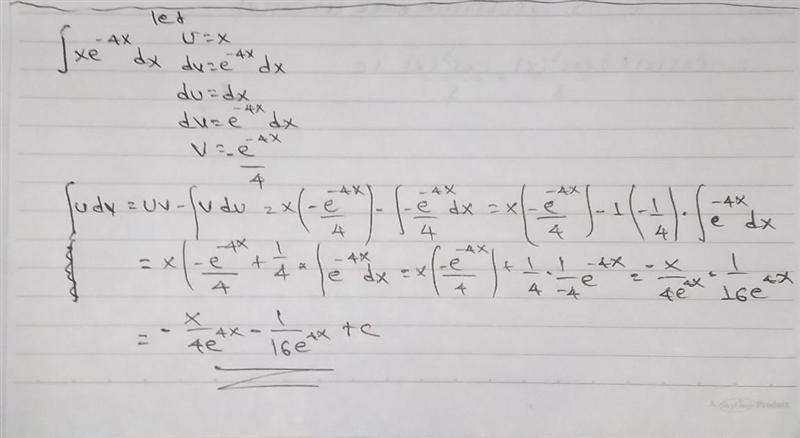 let
∫xe^{-4x} dx   u=x
dv=e^{-4x} dx
du=dx
dv=e^{-4x} dx
v=-e^{-4x}/4
∫u dv = uv-∫v du = x(-e^{-4x}/4) - ∫-e^{-4x}/4 dx = x(-e^{-4x}/4) - 1(-1/4)·∫e^{-4x} dx
= x(-e^{-4x}/4 + 1/4 * ∫e^{-4x} dx = x(-e^{-4x}/4) + 1/4 · 1/-4 e^{-4x} = -x/4e^{4x} - 1/16e^{4x}
= -x/4e^{4x} - 1/16e^{4x} + c
Product